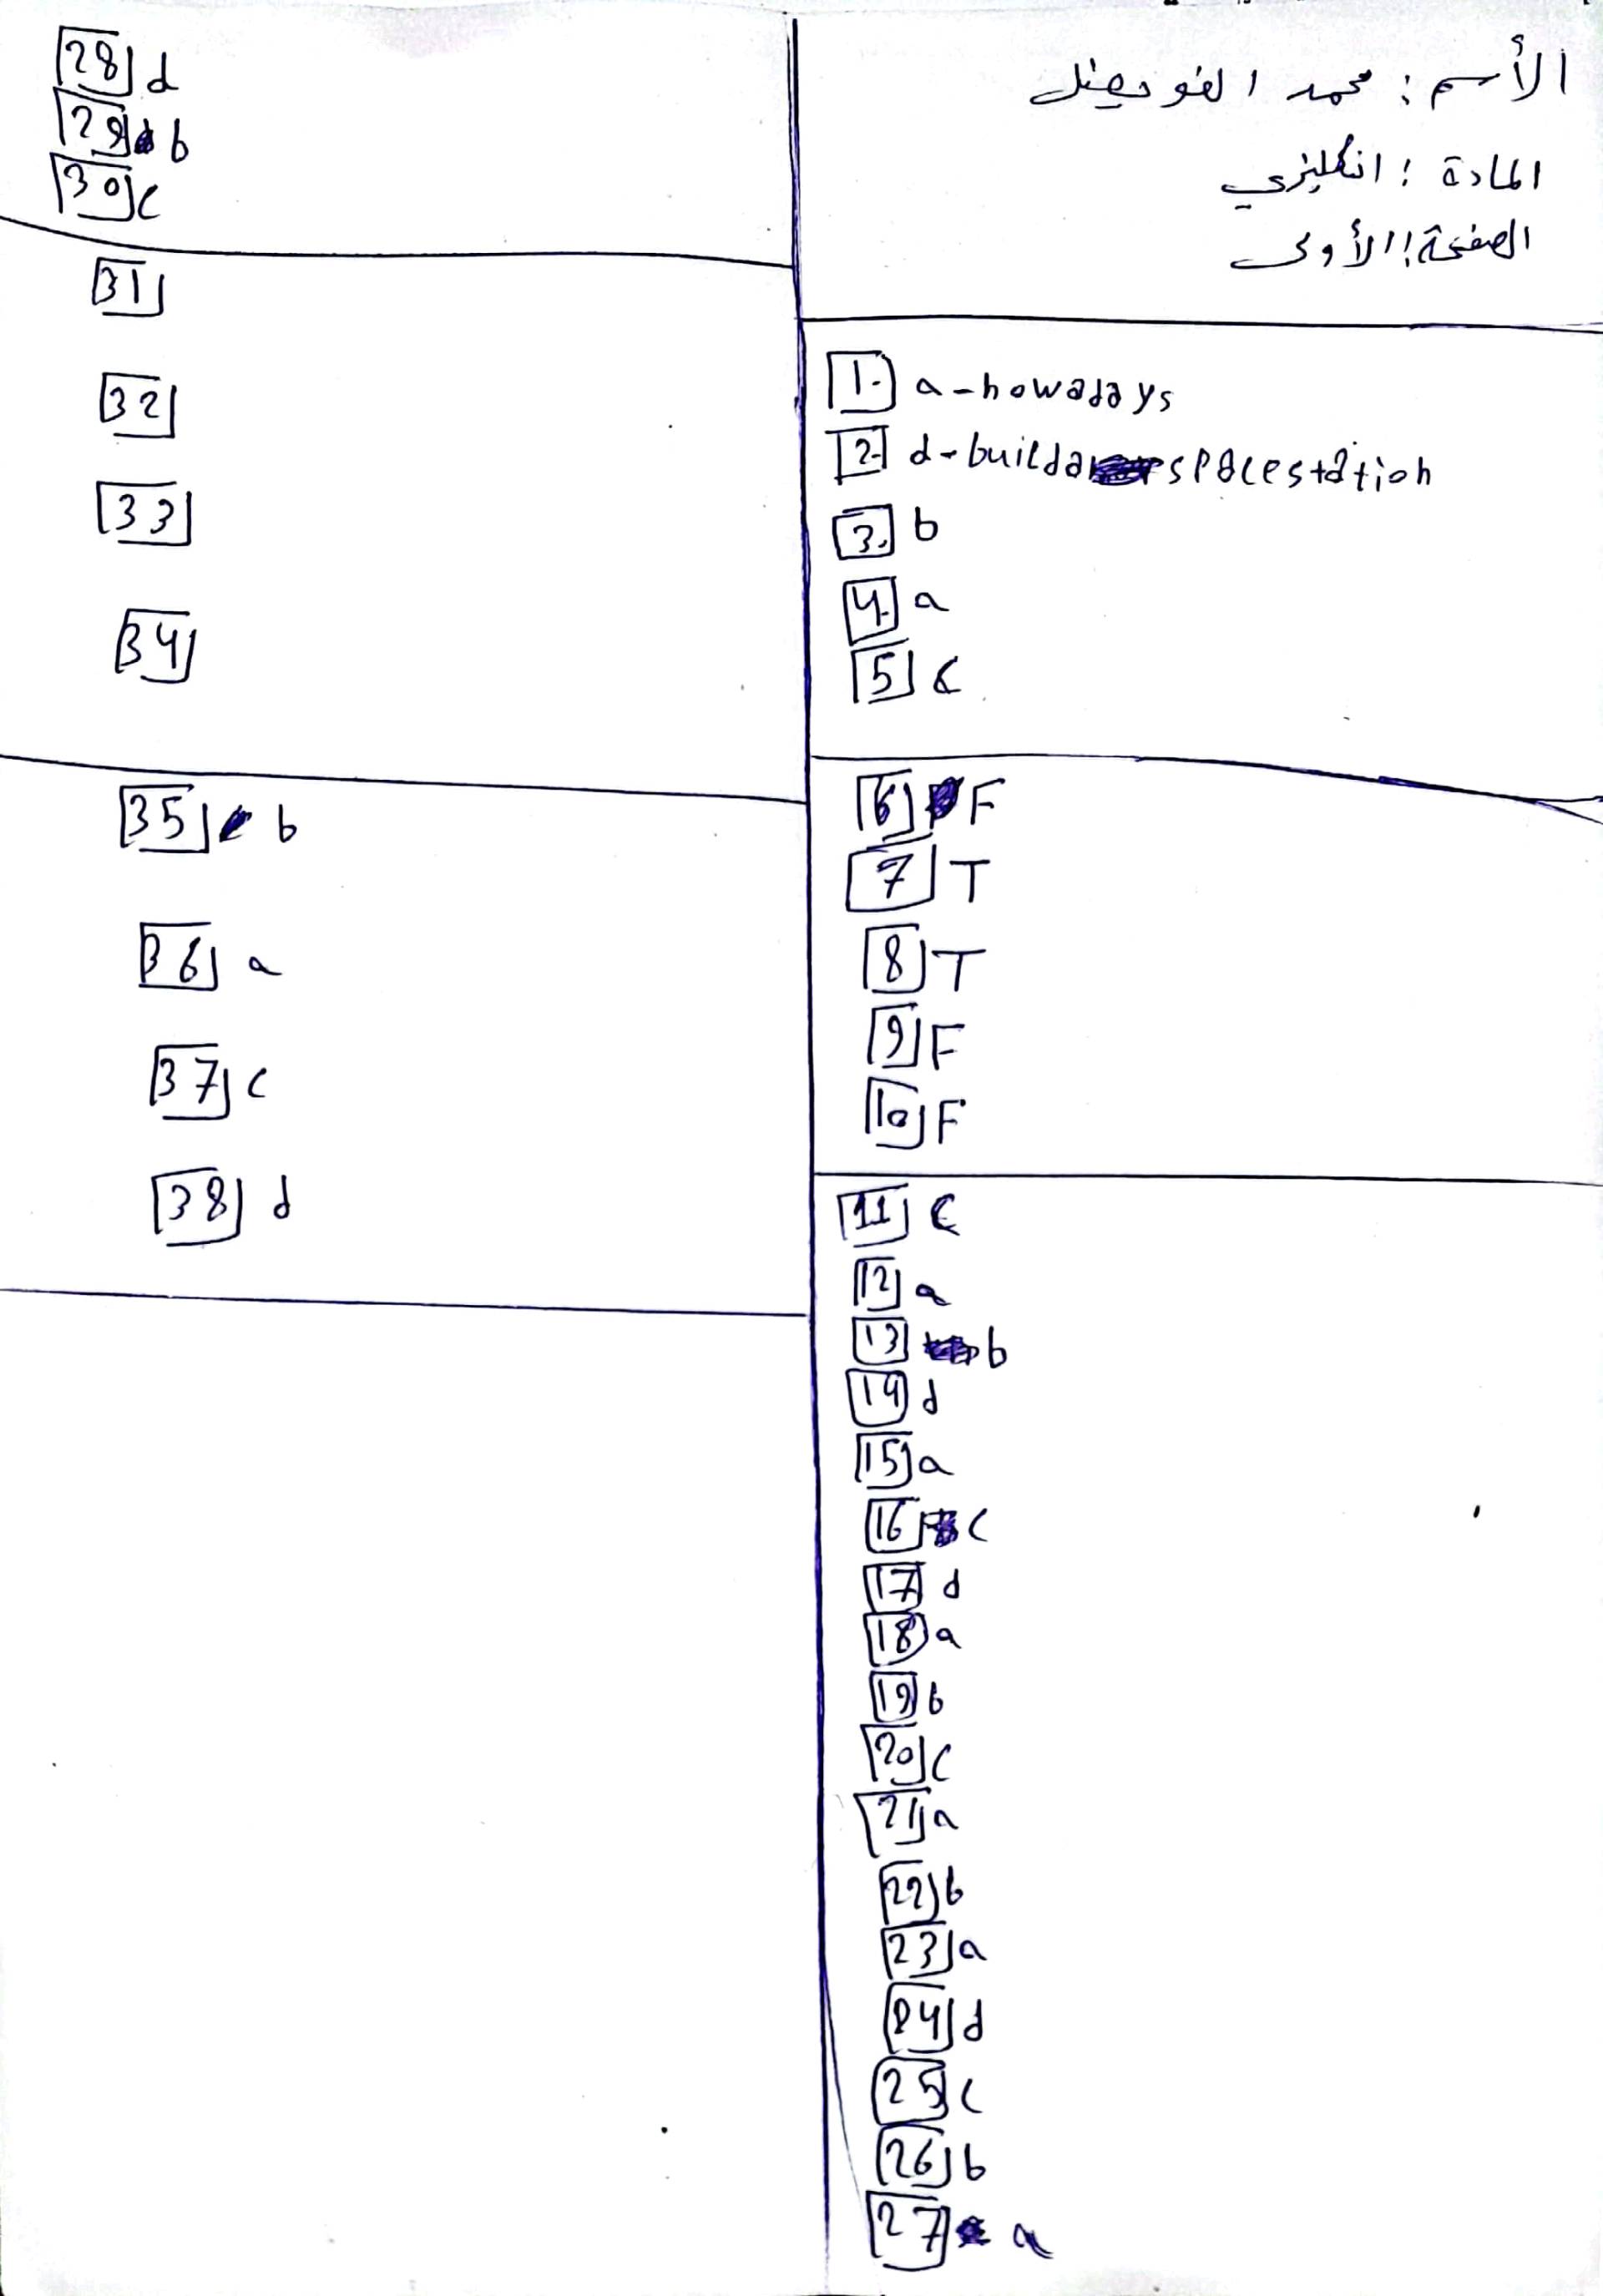 الأسم : محمد الفويصل
المادة : انكليزي
الصفحة : الأولى
1. a - howadays
2. d - builda spacestatioh
3. b
4. a
5 c
6 F
7 T
8 T
9 F
10 F
11 c
12 a
13 b
14 d
15 a
16 c
17 d
18 a
19 b
20 c
21 a
22 b
23 a
24 d
25 c
26 b
27 a
28 d
29 b
30 c
31
32
33
34
35 b
36 a
37 c
38 d